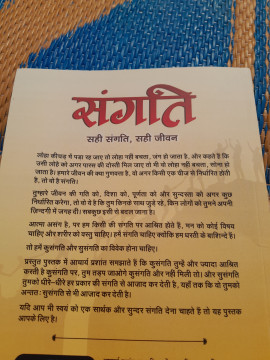 संगति
सही संगति, सही जीवन
लोहा कीचड़ में पड़ा रह जाए तो लोहा नहीं बचता, जंग हो जाता है, और कहते हैं कि
उसी लोहे को अगर पारस की दोस्ती मिल जाए तो भी वो लोहा नहीं बचता, सोना हो
जाता है। हमारे जीवन की क्या गुणवत्ता है, वो अगर किसी एक चीज़ से निर्धारित होती
है, तो वो है संगति।
तुम्हारे जीवन की गति को, दिशा को, पूर्णता को और सुन्दरता को अगर कुछ
निर्धारित करेगा, तो वो ये है कि तुम किनके साथ जुड़े रहे, किन लोगों को तुमने अपनी
ज़िन्दगी में जगह दी। सबकुछ इसी से बदल जाना है।
आत्मा असंग है, पर हम किसी की संगति पर आश्रित होते हैं, मन को कोई विषय
चाहिए और शरीर को वस्तु चाहिए। हमें संगति चाहिए क्योंकि हम धरती के बाशिन्दे हैं।
तो हमें कुसंगति और सुसंगति का विवेक होना चाहिए।
प्रस्तुत पुस्तक में आचार्य प्रशांत समझाते हैं कि कुसंगति तुम्हें और ज़्यादा आश्रित
करती है कुसंगति पर, तुम तड़प जाओगे कुसंगति और नहीं मिली तो। और सुसंगति
तुमको धीरे-धीरे हर प्रकार की संगति से आज़ाद कर देती है, यहाँ तक कि वो तुमको
अन्ततः सुसंगति से भी आज़ाद कर देती है।
यदि आप भी स्वयं को एक सार्थक और सुन्दर संगति देना चाहते हैं तो यह पुस्तक
आपके लिए है।